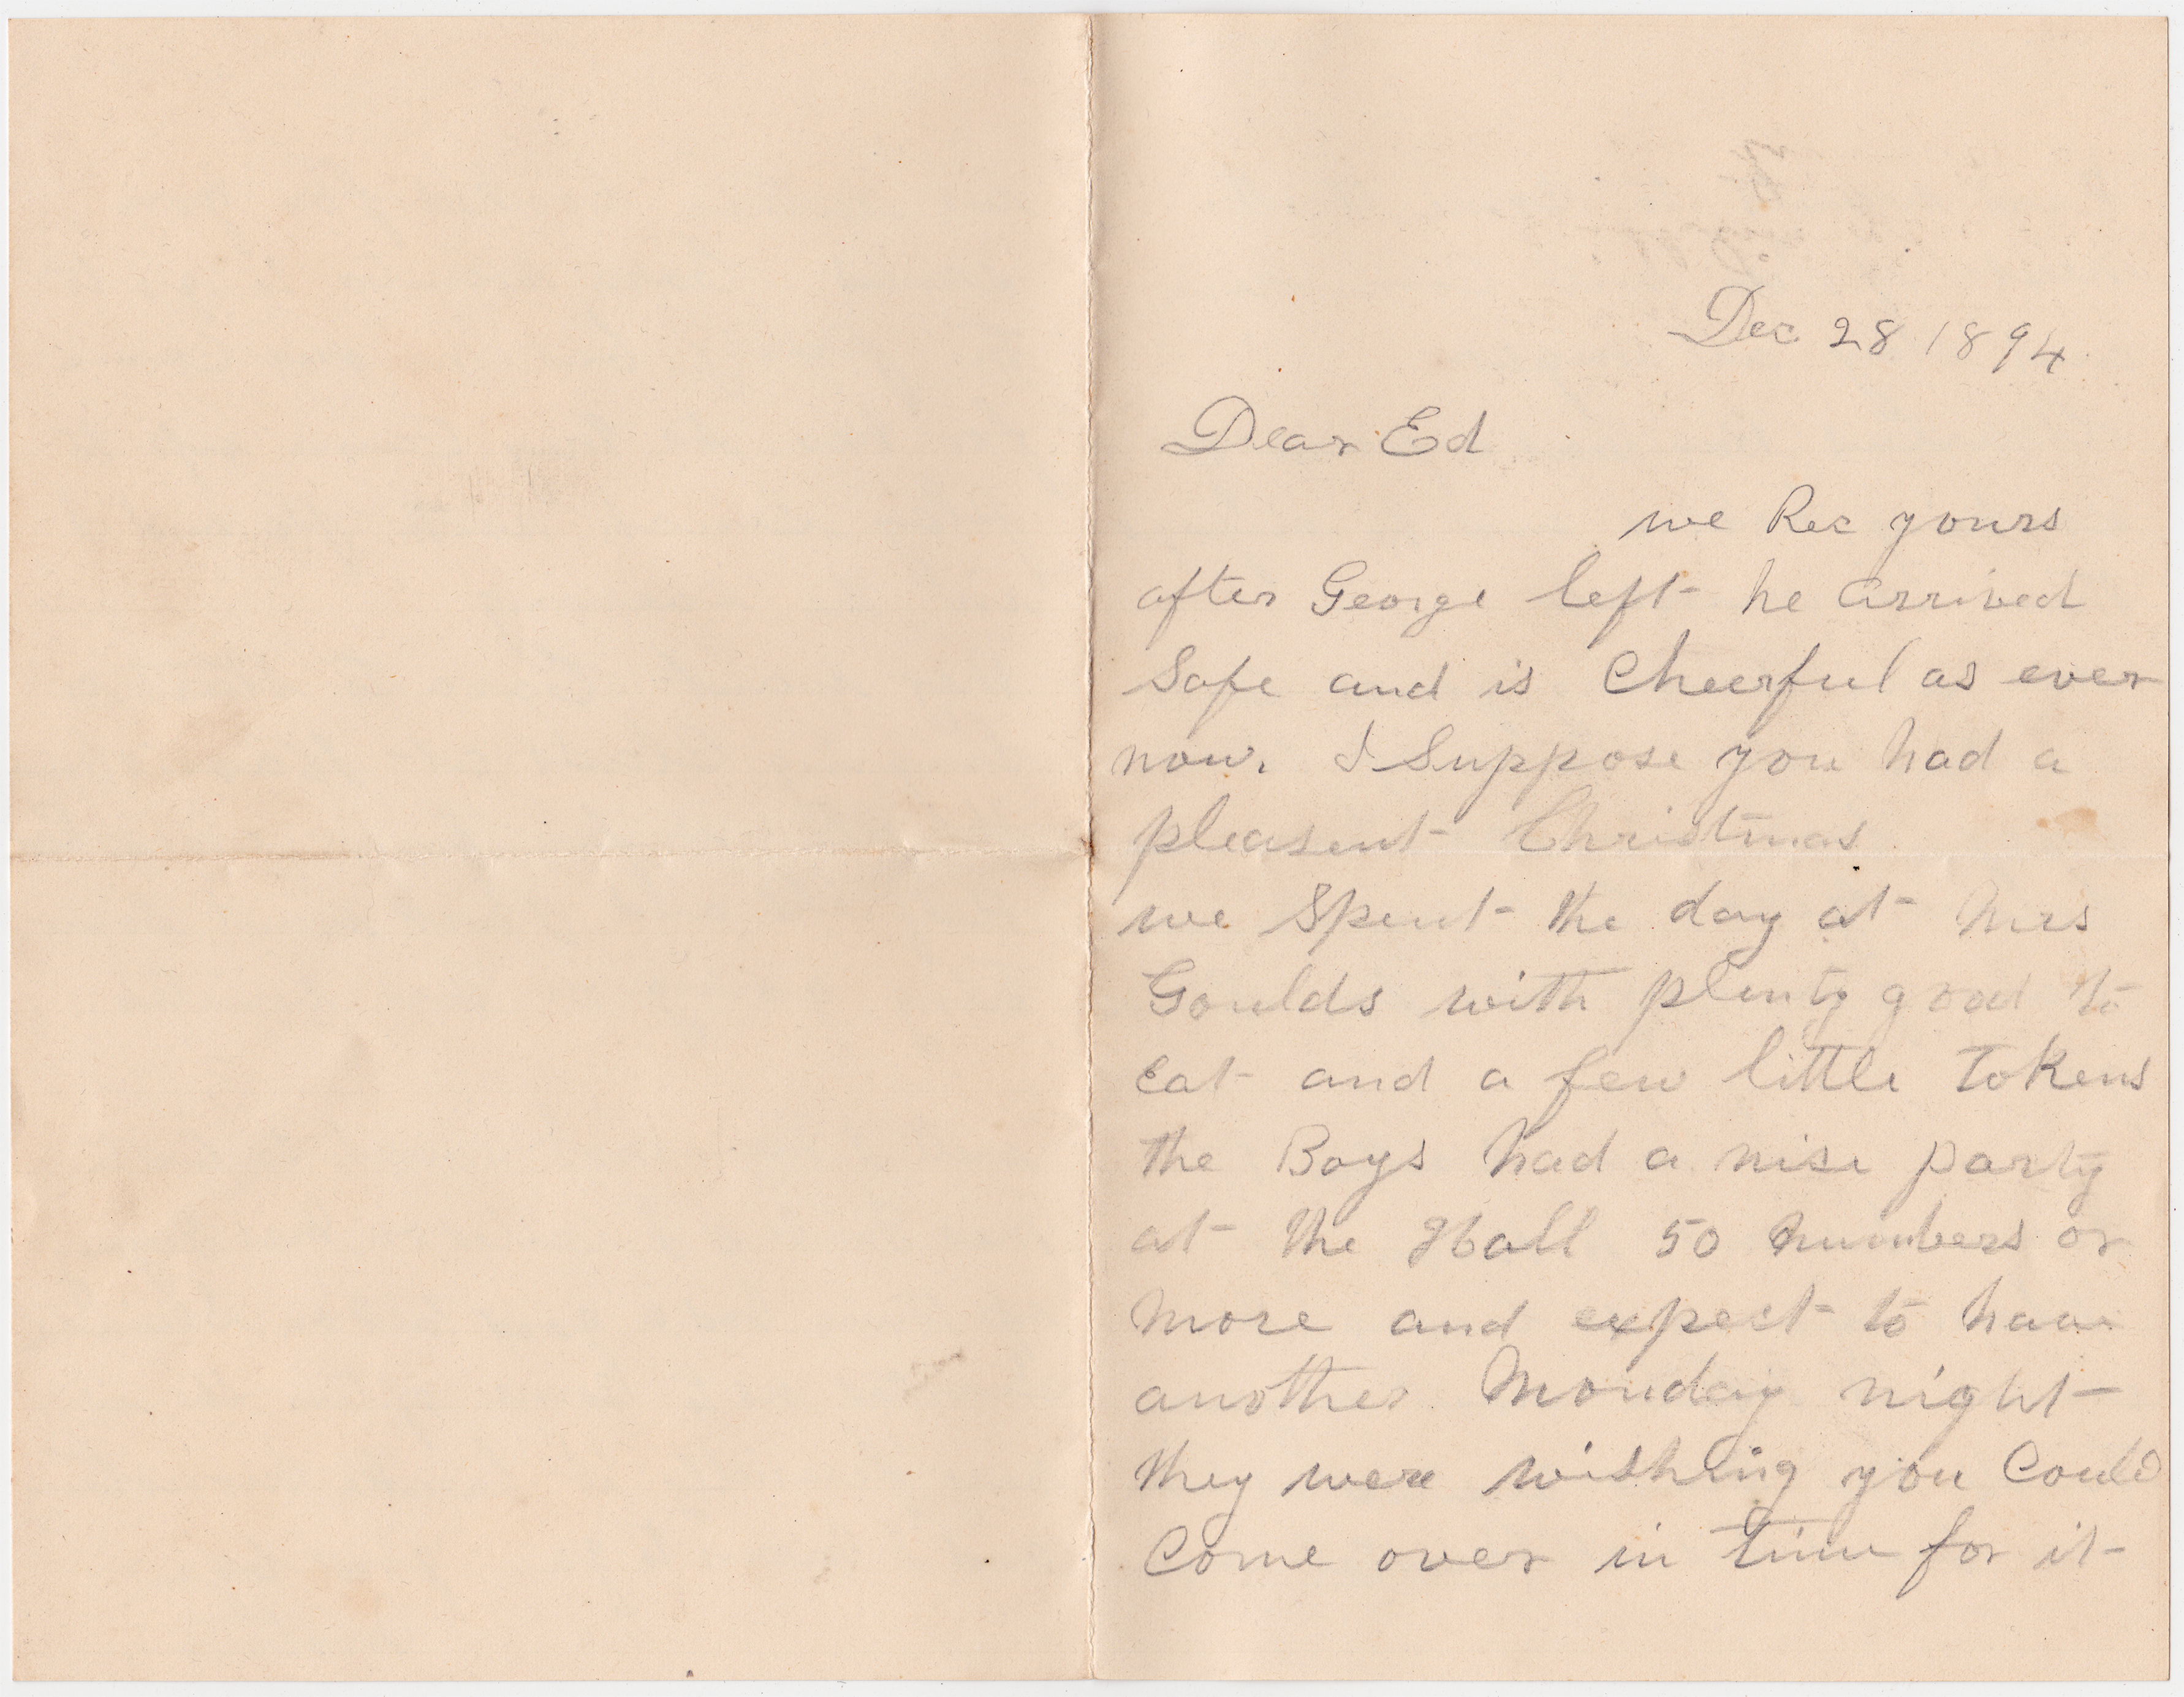 Dec 28 1894
Dear Ed
we Rec yours
after George left he arrived
Safe and is Cheerful as ever
now. I Suppose you had a
pleasent Christmas
we Spent the day at Mrs
Goulds with plenty good to
Eat and a few little Tokens
the Boys had a nise party
at the Hall 50 numbers or
more and expect to have
another Monday night
they were wishing you Could
Come over in time for it